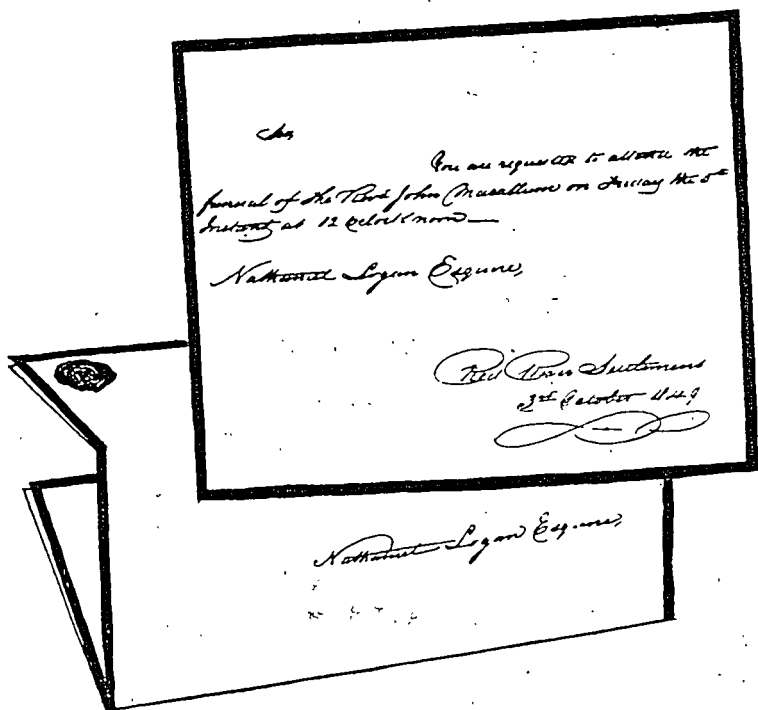 Sir,
You are requested to attend the
funeral of the Revd John Macallum on Friday the 5th
Instant at 12 oclock noon —
Nathaniel Logan Esquire,
Red River Settlement
3rd October 1849
Nathaniel Logan Esquire,